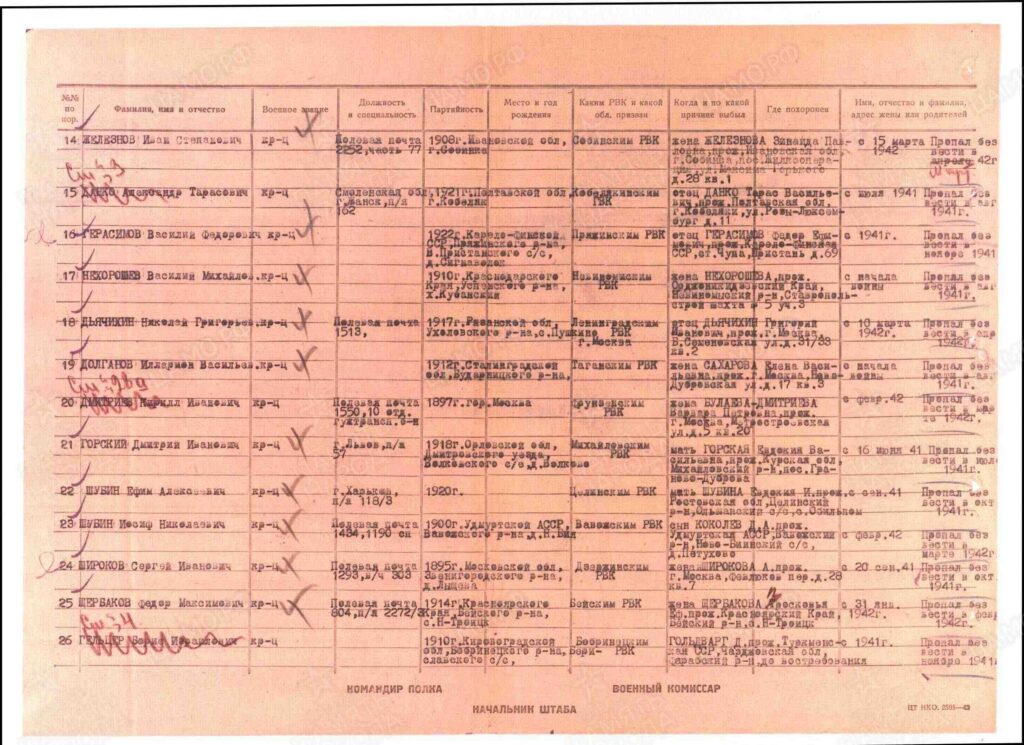 №№ по пор.
Фамилия, имя и отчество
Военное звание
Должность и специальность
Партийность
Место и год рождения
Каким РВК и какой обл. призван
Когда и по какой причине выбыл
Где похоронен
Имя, отчество и фамилия, адрес жены или родителей
14 ЖЕЛЕЗНОВ Иван Степанович кр-ц Полевая почта 1908г.Ивановской обл, Собинским РВК жена ЖЕЛЕЗНОВА Зинаида Пав- с 15 марта Пропал без
2252,часть 77 г.Собинка ловна,прож.Ивановская обл. 1942 вести в
г.Собинка,пос.Жилкоопера- апреле 42г
ции,ул.Максима Горького
д.28 кв.1
15 ДАНКО Александр Тарасович кр-ц Смоленская обл,1921г.Полтавской обл,Кобелякским отец ДАНКО Тарас Василье- с июля 1941 Пропал без
п/я г.Кобеляк РВК вич,прож.Полтавская обл. вести в авг
162 г.Кобеляки,ул.Розы-Люксем- 1941г.
бург д.11
16 ГЕРАСИМОВ Василий Федорович кр-ц 1922г.Карело-Финской Пряжинским РВК отец ГЕРАСИМОВ Федор Ефи- с 1941г. Пропал без
ССР,Пряжинского р-на, мович,прож.Карело-Финская вести в
с/с, ССР,ст.Чупа,Пристань д.69 ноябре 1941
17 НЕХОРОШЕВ Василий Михайлов.кр-ц 1910г.Краснодарского жена НЕХОРОШЕВА,прож. с начала Пропал без
Края,Успенского р-на, РВК Орджоникидзевский Край, войны вести в авг
х.Кубанский р-н,Ставрополь- 1941г.
строй шахта № 5 уч.3
18 ДЬЯЧИХИН Николай Григорьев.кр-ц Полевая почта 1917г.Рязанской обл, Ленинградским отец ДЬЯЧИХИН Григорий с 10 марта Пропал без
1513, Ухоловского р-на,с.Пушкино РВК Иванович,прож.г.Москва, 1942г. вести в апр
г.Москва Б.Семеновская ул.д.31/33 1942г.
кв.2
19 ДОЛГАНОВ Илларион Васильев.кр-ц 1912г.Сталинградской Таганским РВК жена САХАРОВА Елена Васи- с начала Пропал без
обл,Бударинского р-на, льевна,прож.г.Москва,Ново- войны вести в авг
Дубровская ул.д.17 кв.3 1941г.
20 ДМИТРИЕВ Кирилл Иванович кр-ц Полевая почта 1897г.гор.Москва Фрунзенским жена БУЛАЕВА-ДМИТРИЕВА с февр.42 Пропал без
1550,10 отд. РВК Варвара Петровна,прож. вести в мар
гужтрансп.б-н г.Москва,Метростроевская те 1942г.
ул.д.5 кв.20
21 ГОРСКИЙ Дмитрий Иванович кр-ц г.Львов,п/я 1918г.Орловской обл, Михайловским мать ГОРСКАЯ Евдокия Ва- с 16 июня 41 Пропал без
57 Дмитровского уезда, РВК сильевна,прож.Курская обл, вести в июле
Волковского с/с,д.Волково Михайловский р-н,пос.Гра- 1941г.
ново-Дуброва
22 ШУБИН Ефим Алексеевич кр-ц г.Харьков, 1920г. Целинским РВК мать ШУБИНА Евдокия И.прож.с сен.41 Пропал без
п/я 118/3 Ростовская обл,Целинский вести в окт
р-н,Ольшанский с/с,с.Обильном 1941г.
23 ШУБИН Иосиф Николаевич кр-ц Полевая почта 1900г.Удмуртской АССР, Вавожским РВК сын КОКОЛЕВ Д.А.прож. с февр.42 Пропал без
1434,1190 сп Вавожского р-на,д.Н.Бия Удмуртская АССР,Вавожский вести в
р-н,Ново-Биинский с/с, марте 1942г
д.Петухово
24 ШИРОКОВ Сергей Иванович кр-ц Полевая почта 1895г.Московской обл, Дзержинским жена ШИРОКОВА А.прож. с 20 сен.41 Пропал без
1293,в/ч 303 Звенигородского р-на, РВК г.Москва, пер.д.28 вести в окт
д.Лыщева кв.7 1941г.
25 ЩЕРБАКОВ Федор Максимович кр-ц Полевая почта 1914г.Красноярского Бейским РВК жена ЩЕРБАКОВА Просковья с 31 янв. Пропал без
804,п/я 2272/3 Края,Бейского р-на, Еф.прож.Красноярский Край, 1942г. вести в фев
с.Н-Троицк Бейский р-н,с.Н-Троицк 1942г.
26 ГЕЛЬЦЕР кр-ц 1910г.Кировоградской Бобринецким ГОЛЬДВАРГ Д.прож.Туркменс- с 1941г. Пропал без
обл,Бобринецкого р-на, РВК кая ССР,Чарджовская обл, вести в
славского с/с, р-н,до востребования ноябре 1941
КОМАНДИР ПОЛКА
ВОЕННЫЙ КОМИССАР
НАЧАЛЬНИК ШТАБА
ЦТ НКО. 2595—43